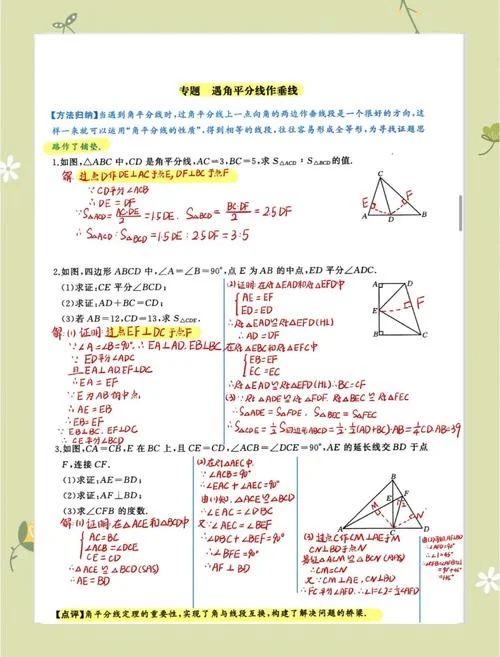 专题 遇角平分线作垂线
【方法归纳】当遇到角平分线时,过角平分线上一点向角的两边作垂线段是一个很好的方向,这
样一来就可以运用“角平分线的性质”,得到相等的线段,往往容易形成全等形,为寻找证题思
路作了铺垫.
1.如图,△ABC 中,CD 是角平分线,AC=3,BC=5,求 S△ACD:S△BCD的值.
解:过点D作DE⊥AC于点E,DF⊥BC于点F
∵CD平分∠ACB
∴DE=DF
∵S△ACD=AC·DE/2=1.5DE. S△BCD=BC·DF/2=2.5DF
∴S△ACD:S△BCD=1.5DE:2.5DF=3:5
C
E
F
A
D
B
2.如图,四边形 ABCD 中,∠A=∠B=90°,点 E 为 AB 的中点,ED 平分∠ADC.
(1)求证:CE 平分∠BCD;
(2)求证:AD+BC=CD;
(3)若 AB=12,CD=13,求 S△CDE.
解:(1)证明:过点EF⊥DC于点F
∵∠A=∠B=90°,∴EA⊥AD.EB⊥BC
∵ED平分∠ADC
且EA⊥AD.EF⊥DC
∴EA=EF
∵E为AB的中点
∴AE=EB
∴EB=EF
∵EB⊥BC.EF⊥DC
∴CE平分∠BCD
(2)证明:在Rt△EAD和Rt△EFD中
AE=EF
ED=ED
∴Rt△EAD≌Rt△EFD(HL)
∴AD=DF
在Rt△EBC和Rt△EFC中
EB=EF
EC=EC
∴Rt△EAD≌Rt△EFD(HL)∴BC=CF
(3)∵Rt△ADE≌Rt△FDE. Rt△BEC≌Rt△FEC
∴S△ADE=S△FDE. S△BEC=S△FEC
∴S△CDE=1/2S四边形ABCD=1/2·1/2(AD+BC)·AB=1/4CD·AB=39
A
D
E
F
B
C
3.如图,CA=CB,E 在 BC 上,且 CE=CD,∠ACB=∠DCE=90°,AE 的延长线交 BD 于点
F,连接 CF.
(1)求证:AE=BD;
(2)求证:AF⊥BD;
(3)求∠CFB 的度数.
解:(1)证明:在△ACE和△BCD中
AC=BC
∠ACB=∠DCE
CE=CD
∴△ACE≌△BCD(SAS)
∴AE=BD
(2)在Rt△AEC中
∵∠ACB=90°
∴∠EAC+∠AEC=90°
由(1)知.△ACE≌△BCD
∴∠EAC=∠DBC
又∵∠AEC=∠BEF
∴∠DBC+∠BEF=90°
∴∠BFE=90°
∴AF⊥BD
B
E
F
1
2
M
N
A
C
D
(3)过点C作CM⊥AE于M
CN⊥BD于点N
易证△ACM≌△BCN(AAS)
∴CM=CN
又∵CM⊥AE,CN⊥BD
∴FC平分∠AFD.∴∠1=∠2=1/2∠AFD
∴∠AFD=90°
∴∠1=45°
【点评】角平分线定理的重要性,实现了角与线段互换,构建了解决问题的桥梁.